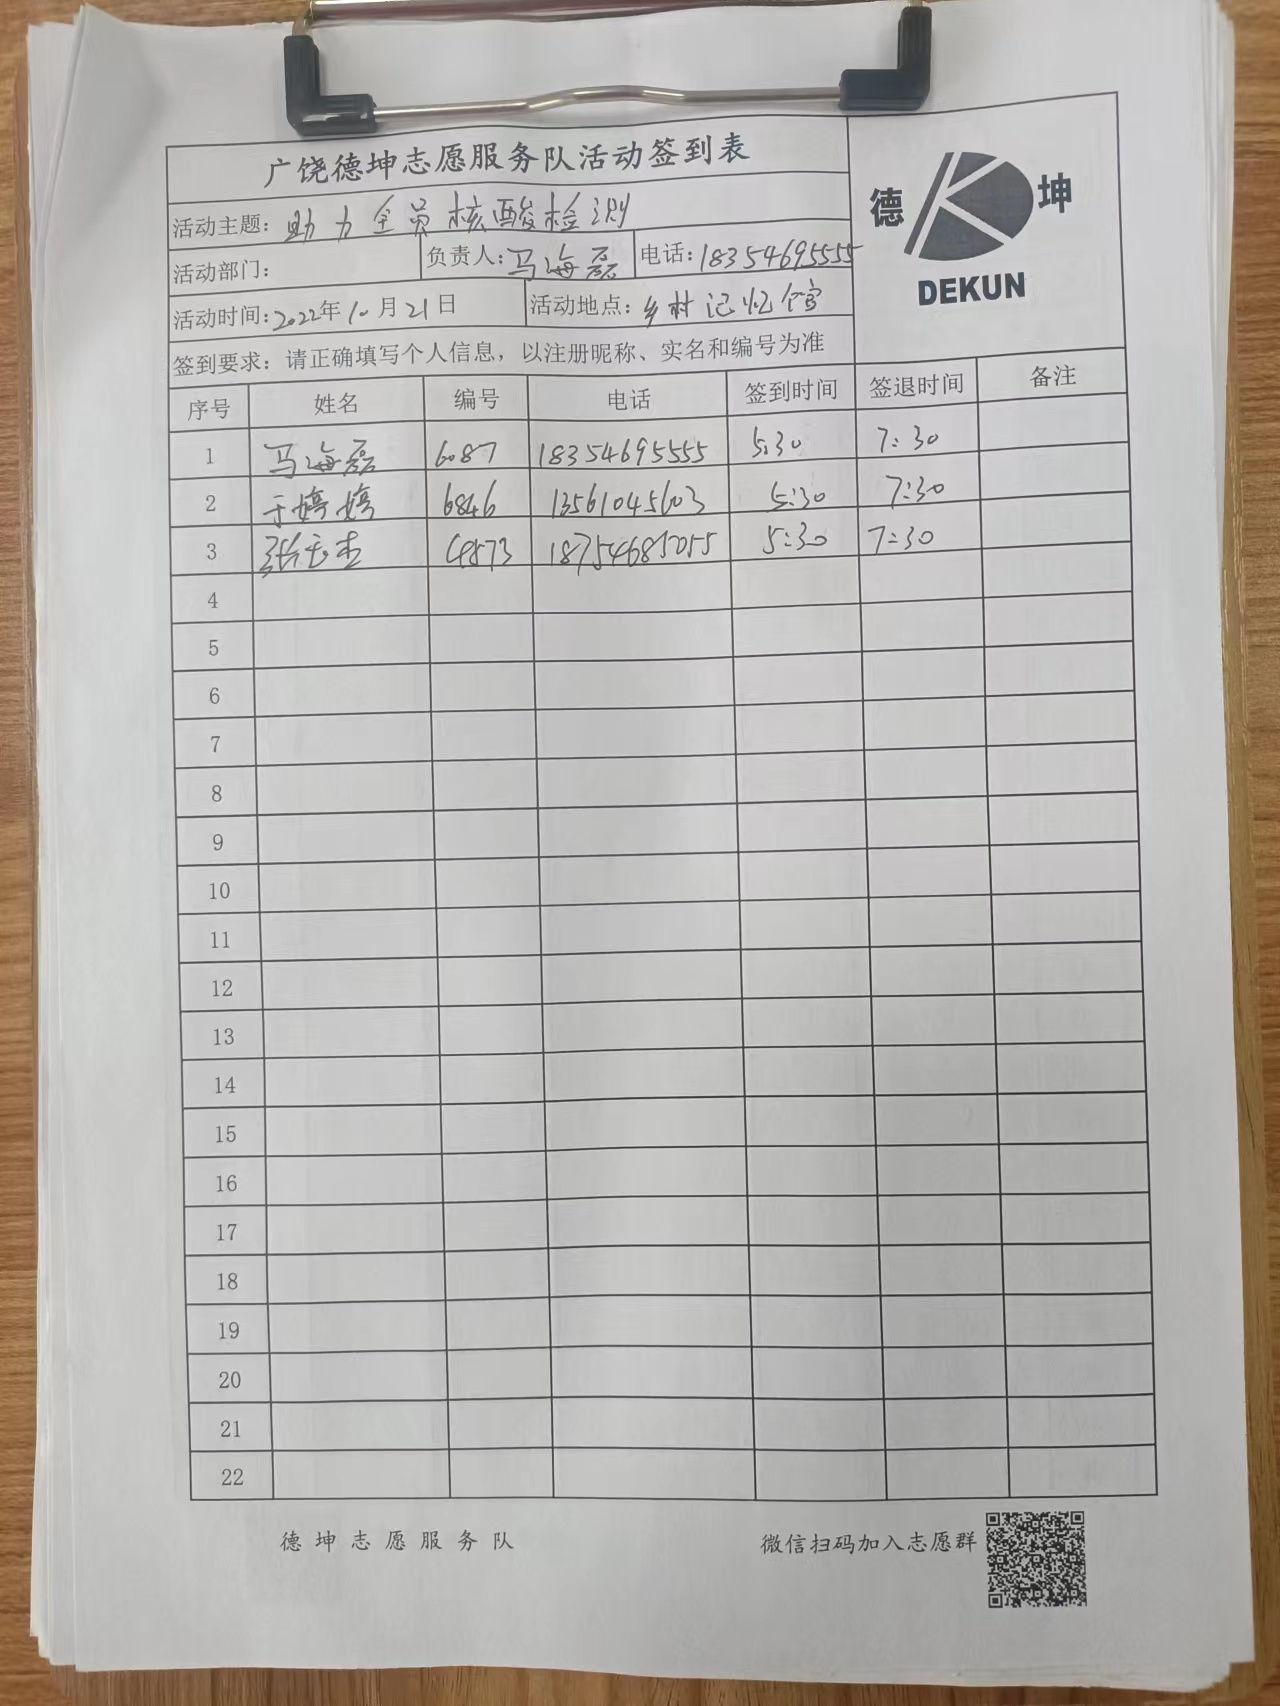 广饶德坤志愿服务队活动签到表
德 坤
DEKUN
活动主题：助力全员核酸检测
活动部门： 负责人：马海磊 电话：18354695555
活动时间：2022年10月21日 活动地点：乡村记忆馆
签到要求：请正确填写个人信息，以注册昵称、实名和编号为准
序号 姓名 编号 电话 签到时间 签退时间 备注
1 马海磊 6087 18354695555 5:30 7:30
2 于婷婷 6846 13561045603 5:30 7:30
3 5:30 7:30
4
5
6
7
8
9
10
11
12
13
14
15
16
17
18
19
20
21
22
德坤志愿服务队 微信扫码加入志愿群